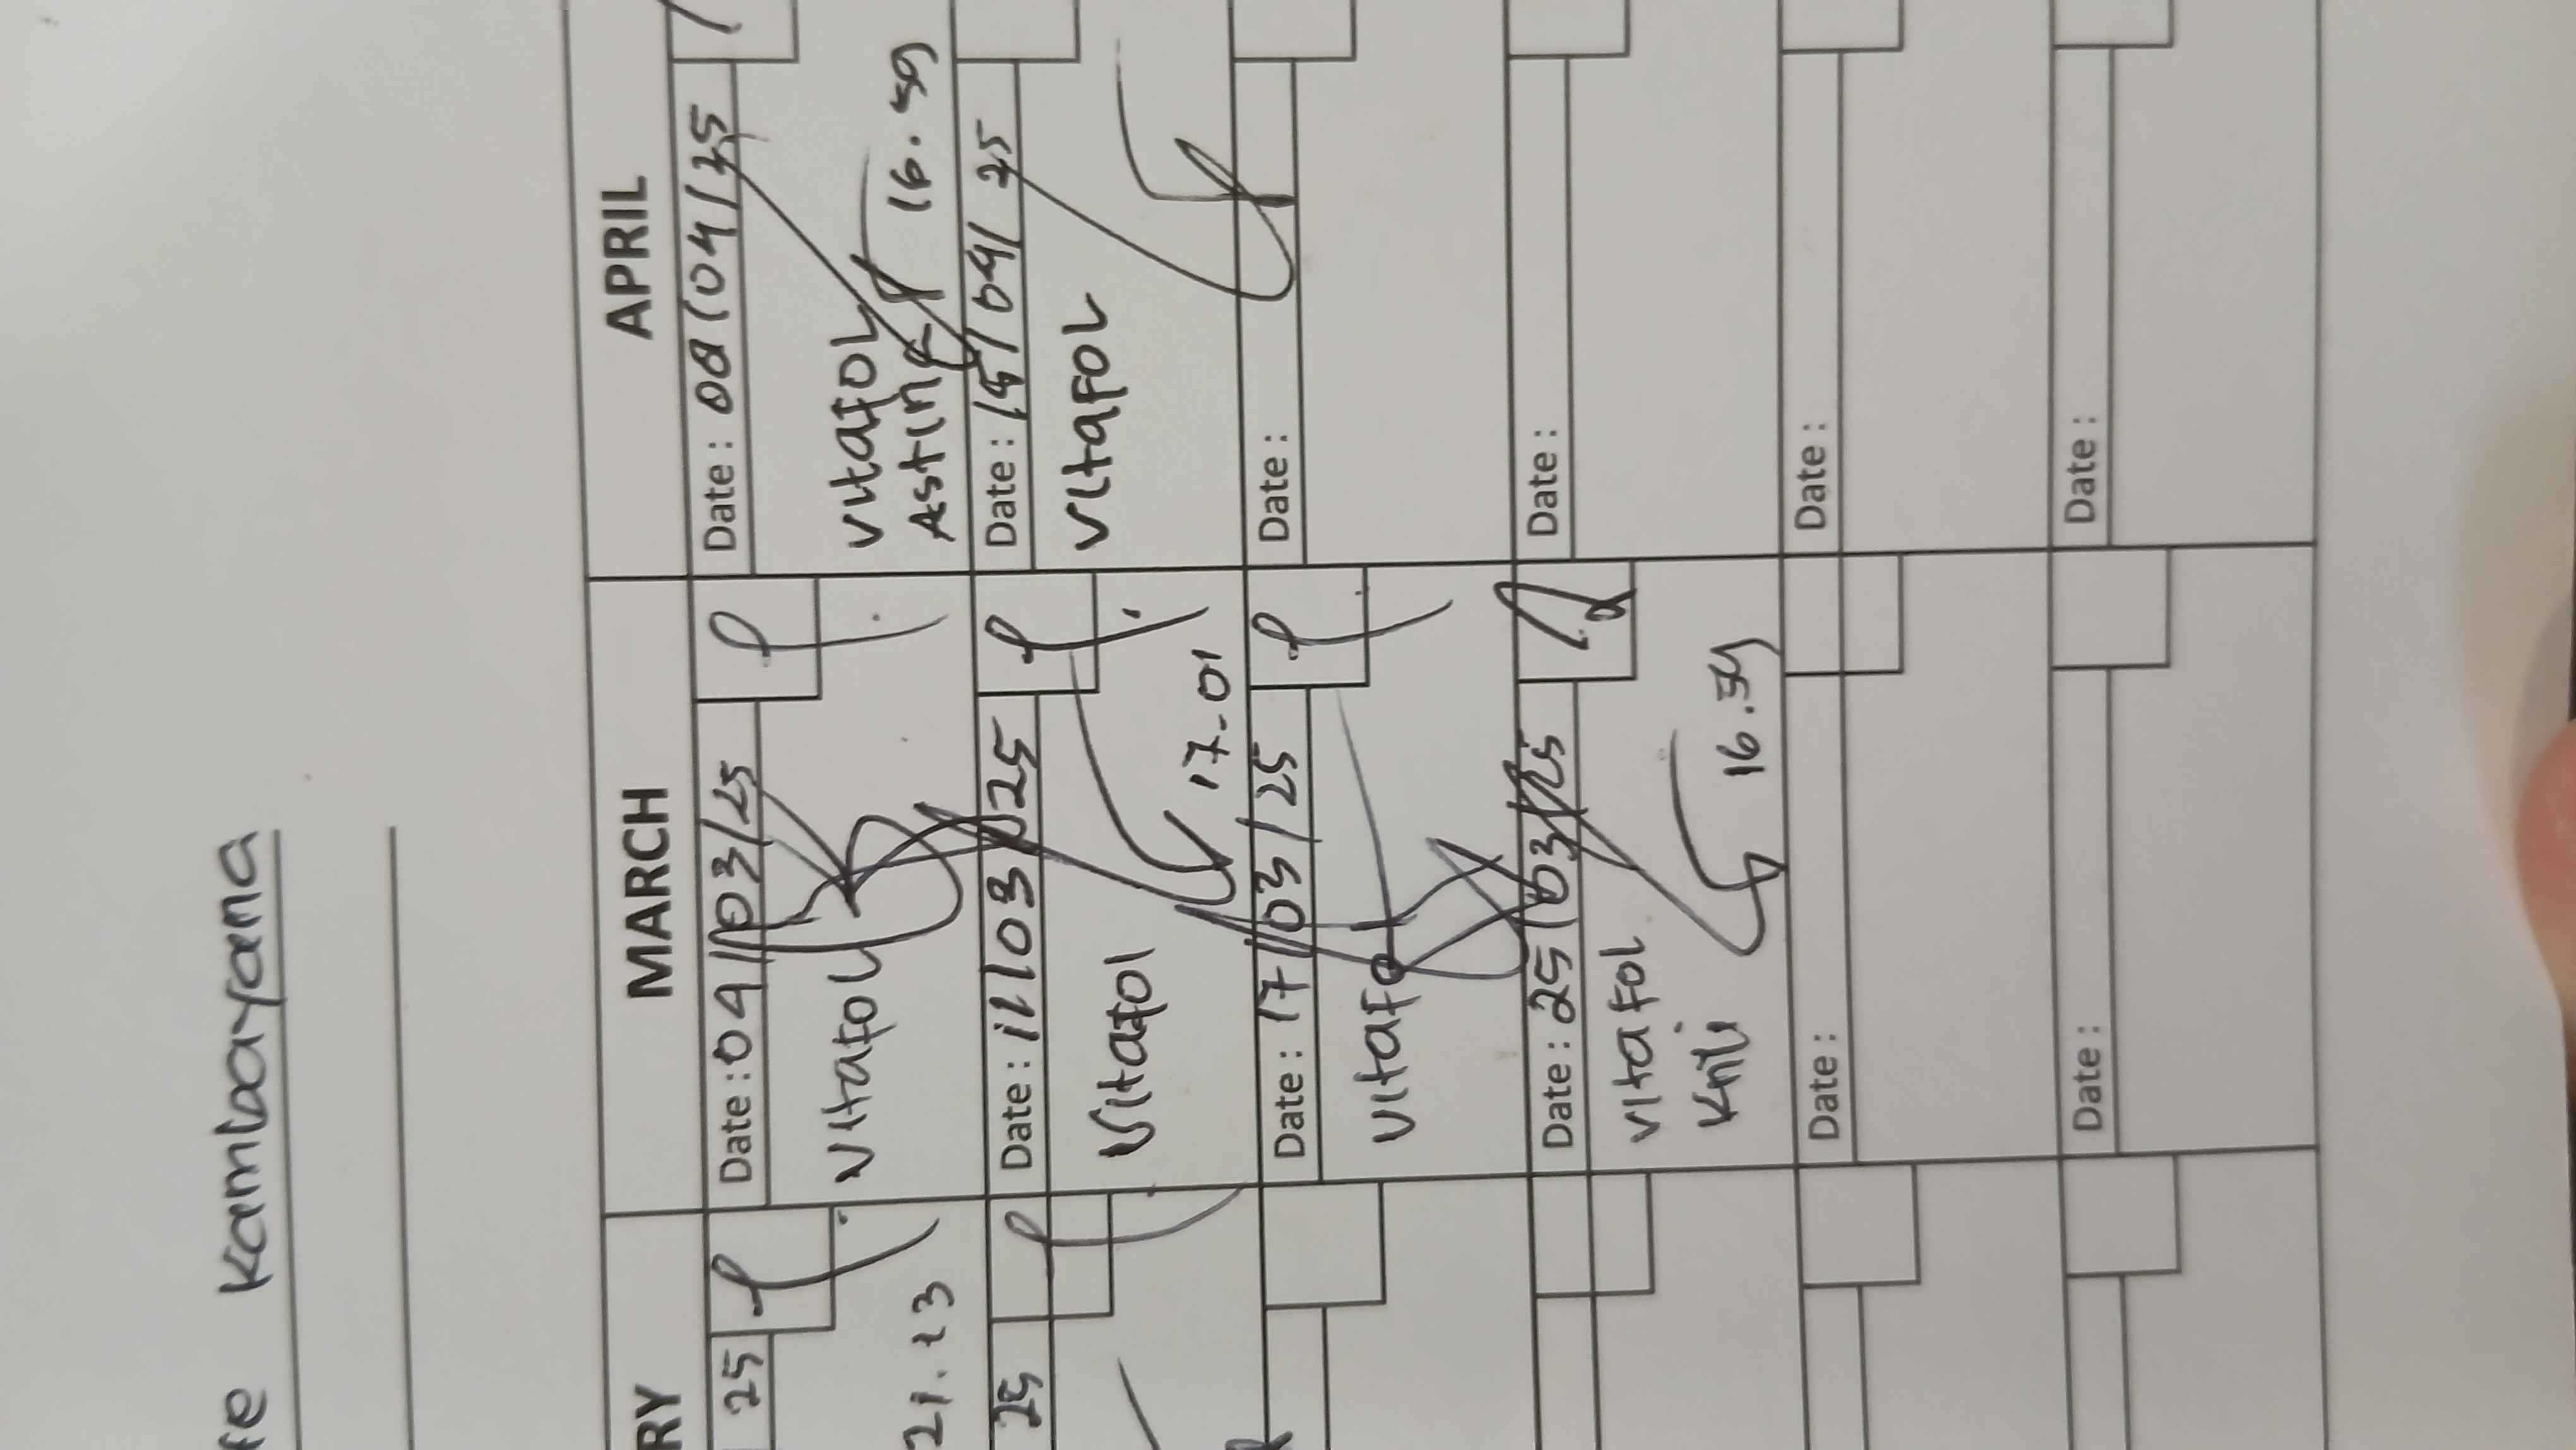 fe Kambayana
RY
MARCH
APRIL
25
Date : 04/03/25
Date : 08/04/25
21.23
Vitafol
Vitafol
16.59
25
Date : 11/03/25
Date : 15/04/25
Vitafol
17-01
Vitafol
Date : 17/03/25
Date :
Vitafol
Date : 25/03/25
Date :
Vitafol
16.59
Date :
Date :
Date :
Date :